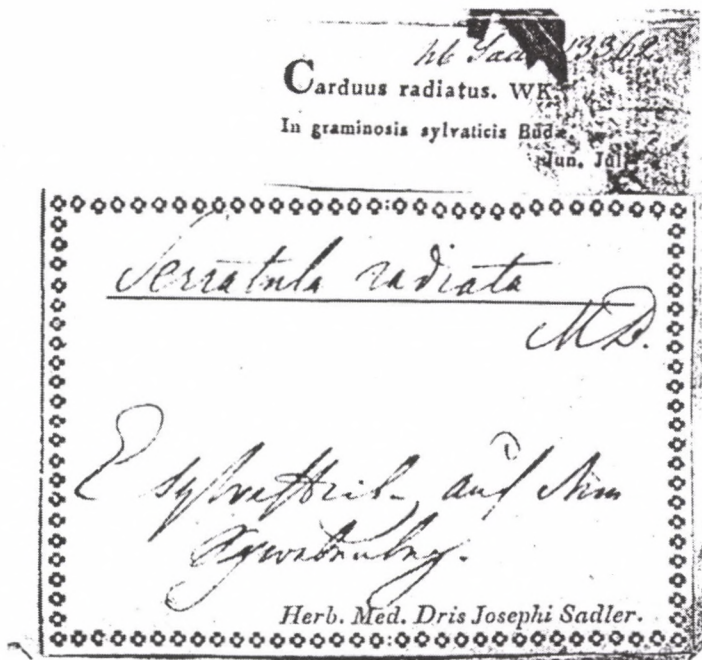 hb Sadl 13362.
Carduus radiatus. WK.
In graminosis sylvaticis Budæ.
Jun. Jul.
Serratula radiata
MB.
E auf dem
Herb. Med. Dris Josephi Sadler.